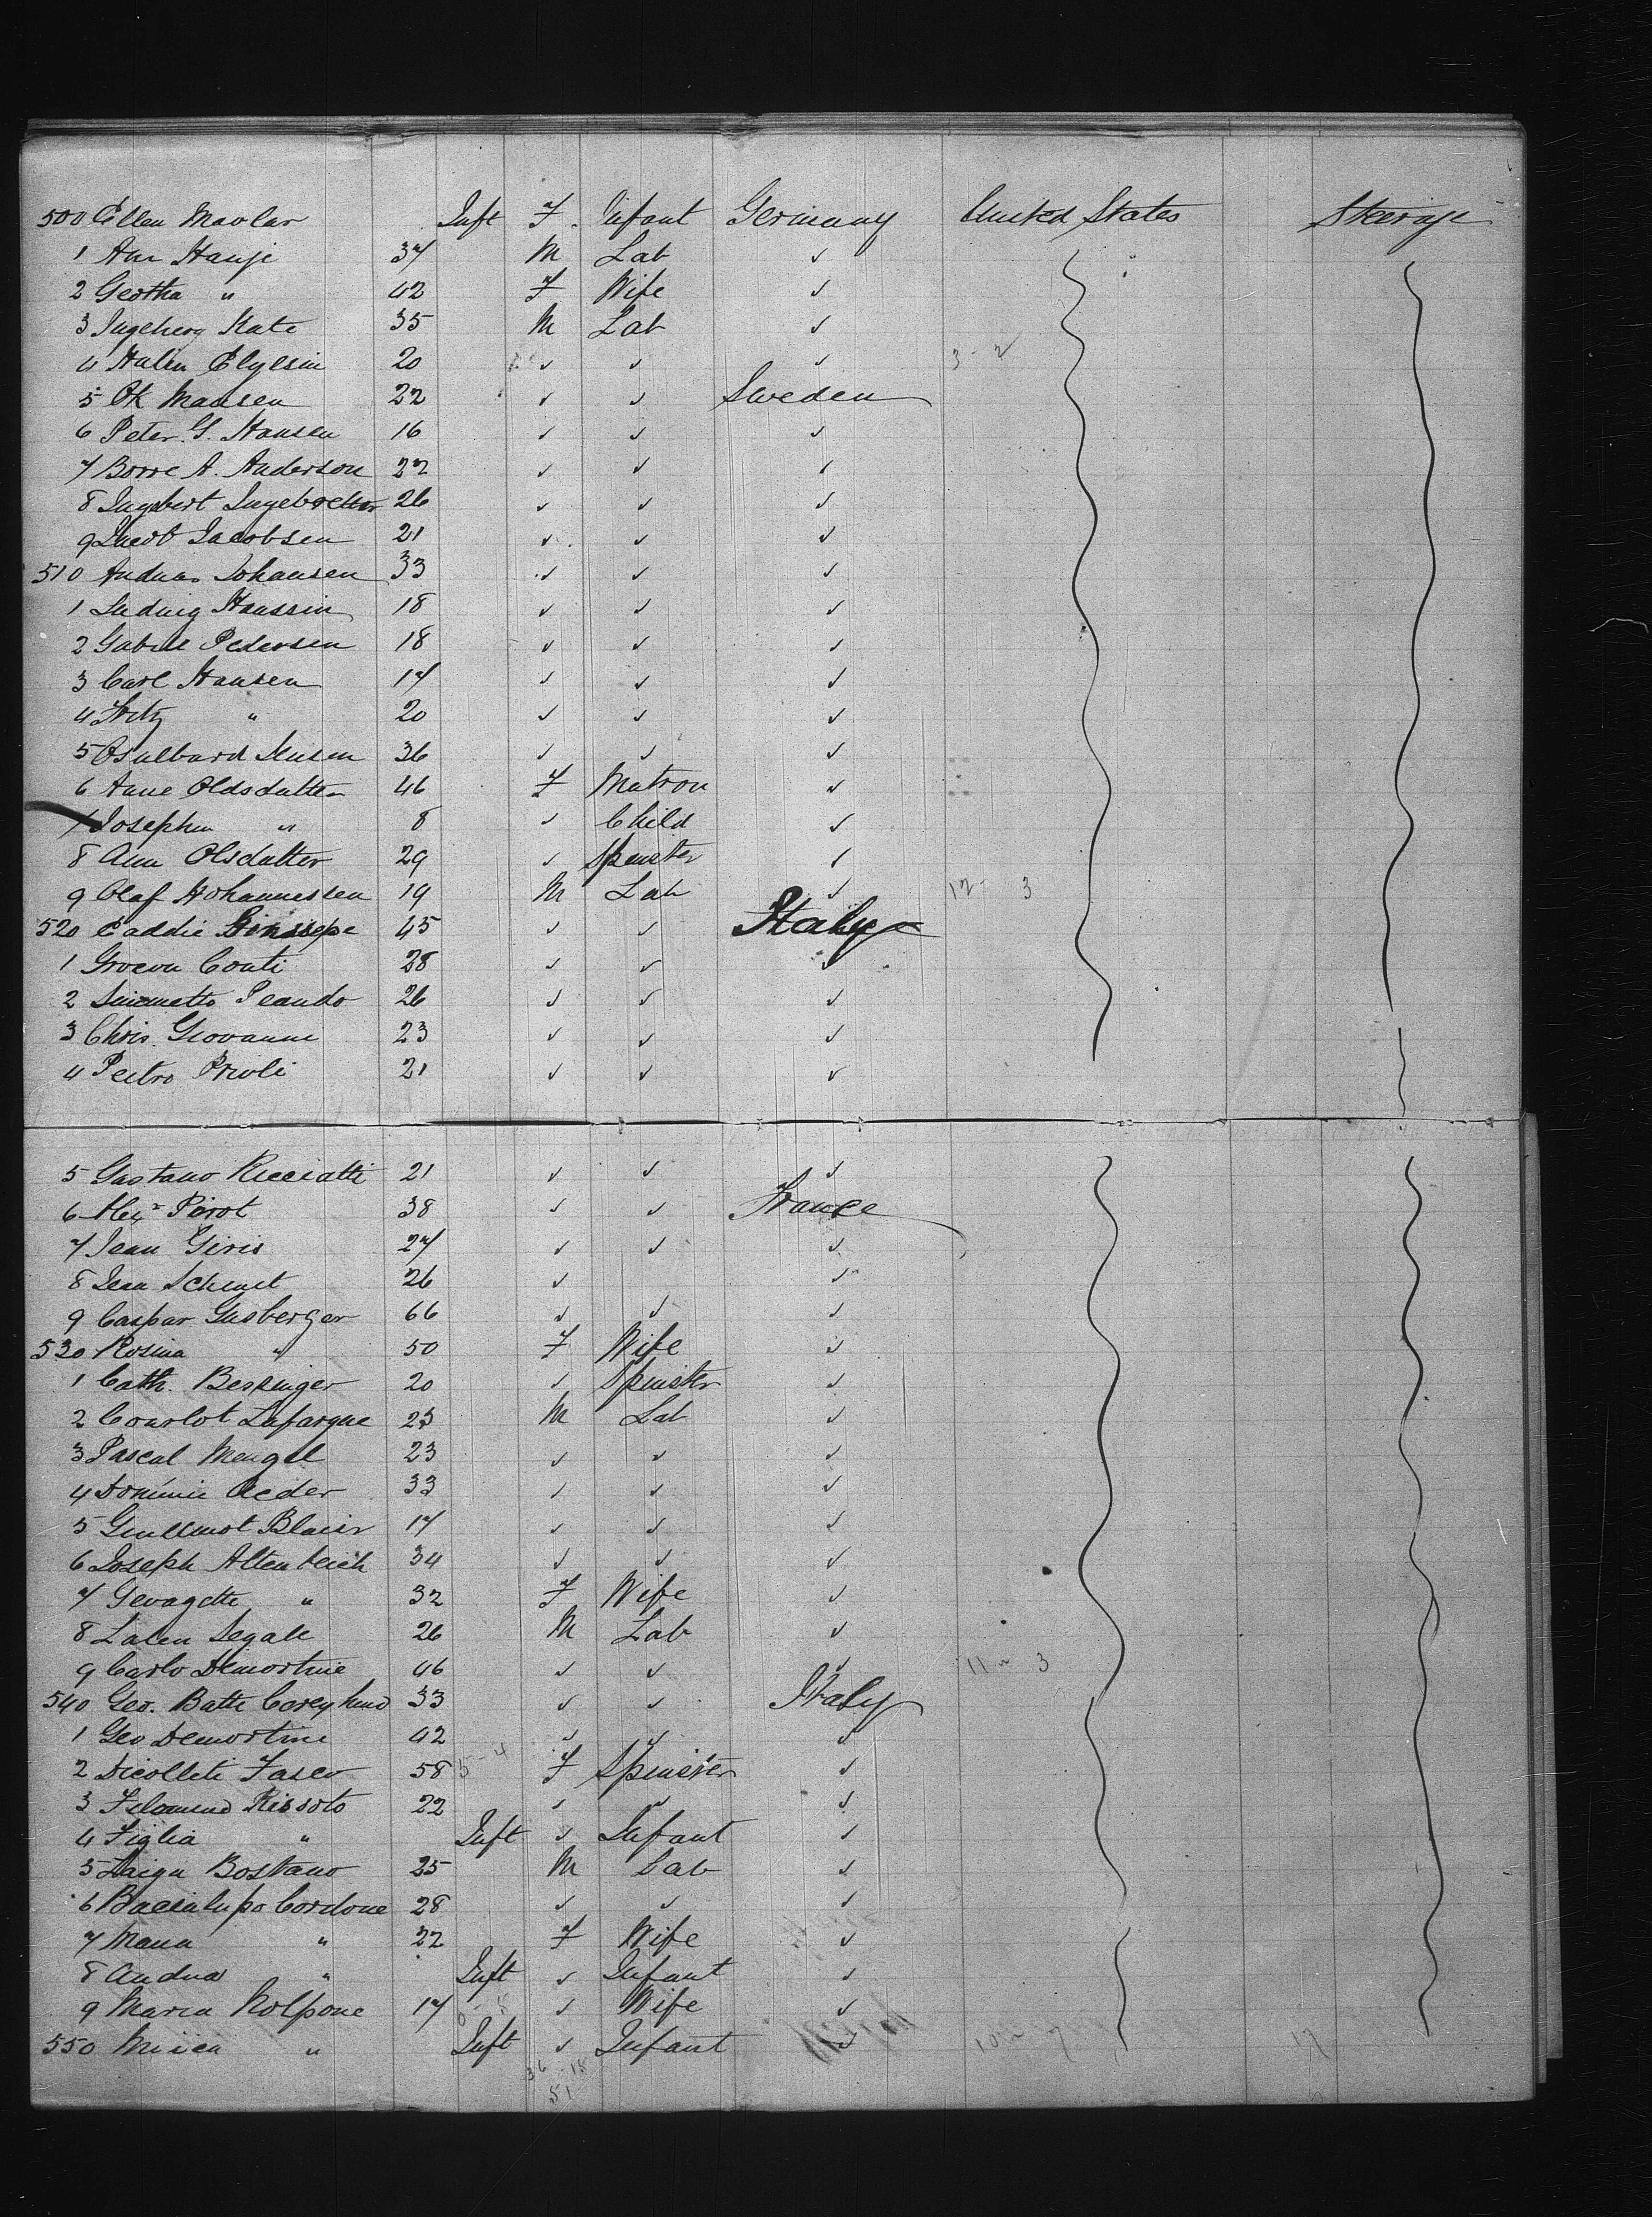 500 Ellen Maolar Inft F Infant Germany United States Steerage
1 Am Hanje 37 M Lab ✓
2 Geotha " 42 F Wife ✓
3 Ingeberg Kate 35 M Lab ✓
4 Halen Elylsin 20 ✓ ✓ ✓ 3 - 2
5 Ok Mansen 22 ✓ ✓ Sweden
6 Peter G. Hansen 16 ✓ ✓ ✓
7 Borre A. Anderson 22 ✓ ✓ ✓
8 Ingebert Ingebretter 26 ✓ ✓ ✓
9 Jacob Jacobsen 21 ✓ ✓ ✓
510 Andreas Johansen 33 ✓ ✓ ✓
1 Ludwig Hanssin 18 ✓ ✓ ✓
2 Gabriel Pedersen 18 ✓ ✓ ✓
3 Carl Hansen 17 ✓ ✓ ✓
4 Fritz " 20 ✓ ✓ ✓
5 Osulbard Jensen 36 ✓ ✓ ✓
6 Anne Oldsdatter 46 F Matron ✓
7 Josephin " 8 ✓ Child ✓
8 Ann Olsdatter 29 ✓ Spinster ✓
9 Olaf Hohannessen 19 M Lab ✓ 12 - 3
520 Eaddie Ginssepe 45 ✓ ✓ Italy
1 Grocon Conti 28 ✓ ✓ ✓
2 Simonetto Peando 26 ✓ ✓ ✓
3 Chris. Giovanni 23 ✓ ✓ ✓
4 Peitro Prioli 21 ✓ ✓ ✓
5 Gastano Ricciatti 21 ✓ ✓ ✓
6 Alexr Pirot 38 ✓ ✓ France
7 Jean Giris 27 ✓ ✓ ✓
8 Jean Schmit 26 ✓ ✓
9 Caspar Gusberger 66 ✓ ✓ ✓
530 Rosina " 50 F Wife ✓
1 Cath. Beshinger 20 ✓ Spinster ✓
2 Courlot Lafargue 23 M Lab ✓
3 Pascal Mengel 23 ✓ ✓ ✓
4 Dominic Oeder 33 ✓ ✓ ✓
5 Guillmot Blaier 17 ✓ ✓ ✓
6 Joseph Altenbeich 34 ✓ ✓ ✓
7 Gevagette " 32 F Wife ✓
8 Lalen Segale 26 M Lab ✓
9 Carlo Demortine 46 ✓ ✓ ✓ 11 - 3
540 Geo. Batte 33 ✓ ✓ Italy
1 Geo Demortine 42 ✓ ✓ ✓
2 Dicolleti Fasco 58 5 - 4 F Spinster ✓
3 Filomena Rissoto 22 ✓ ✓ ✓
4 Figlia " Inft ✓ Infant ✓
5 Laigu Bostano 25 M Lab ✓
6 Bacialupo Cordone 28 ✓ ✓ ✓
7 Maria " 22 F Wife ✓
8 Andrea " Inft ✓ Infant ✓
9 Maria Rolpone 17 ✓ Wife ✓
550 " Inft ✓ Infant ✓ 10 - 7 17
36 - 15
51